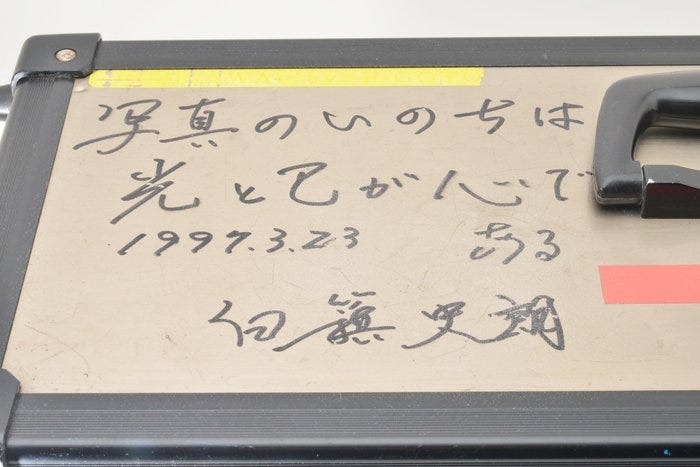 写真のいのちは
光と己が心で
1997.3.23 ある
白籏史朗